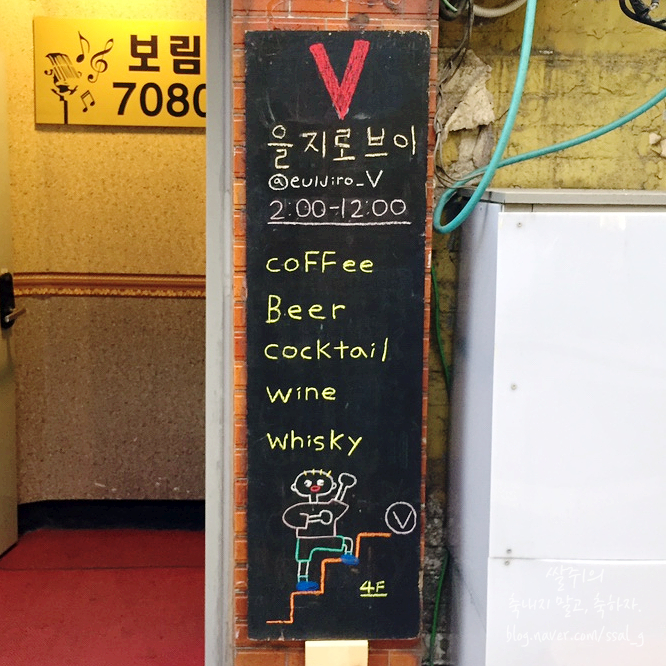 보림
7080
V
을지로브이
@euljiro_V
2:00-12:00
coffee
Beer
cocktail
wine
whisky
V
4F
쌀쥐의
축내지 말고, 축하자.
blog.naver.com/ssal_g